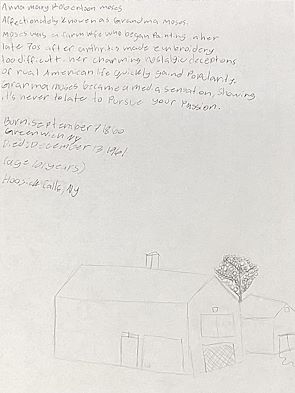 Anna mary Robertson moses.
Affectionately known as Grandma moses.
Moses was a farm wife who began Painting in her
late 70s after arthritis made embroidery
too difficult. her charming nostalgic depictions
of rural American life quickly gaind Popularity.
Granma moses became a media sensation, showing
it's never to late to Pursue your Passion.
Born: september 7 1860
Greenwich NY
Died: December 13, 1961
(age 101 years)
Hoosick Falls, NY